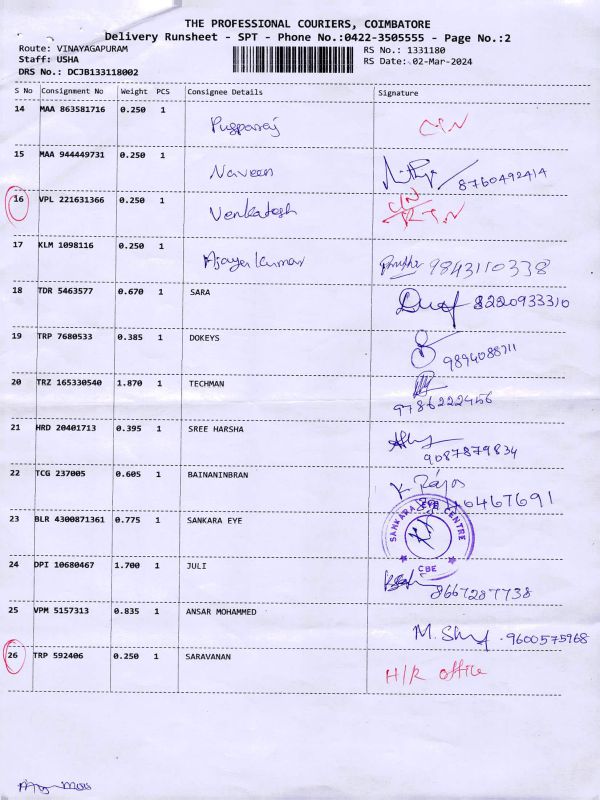 THE PROFESSIONAL COURIERS, COIMBATORE
Delivery Runsheet - SPT - Phone No.:0422-3505555 - Page No.:2
Route: VINAYAGAPURAM RS No.: 1331180
Staff: USHA RS Date: 02-Mar-2024
DRS No.: DCJB133118002
S No Consignment No Weight PCS Consignee Details Signature
14 MAA 863581716 0.250 1 Pugparaj C/N
15 MAA 944449731 0.250 1 Naveen 8760492414
16 VPL 221631366 0.250 1 Venkatesh C/N
17 KLM 1098116 0.250 1 Ajayakumar 9843110338
18 TDR 5463577 0.670 1 SARA 8220933310
19 TRP 7680533 0.385 1 DOKEYS
20 TRZ 165330540 1.870 1 TECHMAN 9786222456
21 HRD 20401713 0.395 1 SREE HARSHA 9087879834
22 TCG 237005 0.605 1 BAINANINBRAN
23 BLR 4300871361 0.775 1 SANKARA EYE SANKARA EYE CENTRE CBE
24 DPI 10680467 1.700 1 JULI 8667287738
25 VPM 5157313 0.835 1 ANSAR MOHAMMED 9600575968
26 TRP 592406 0.250 1 SARAVANAN H/R office